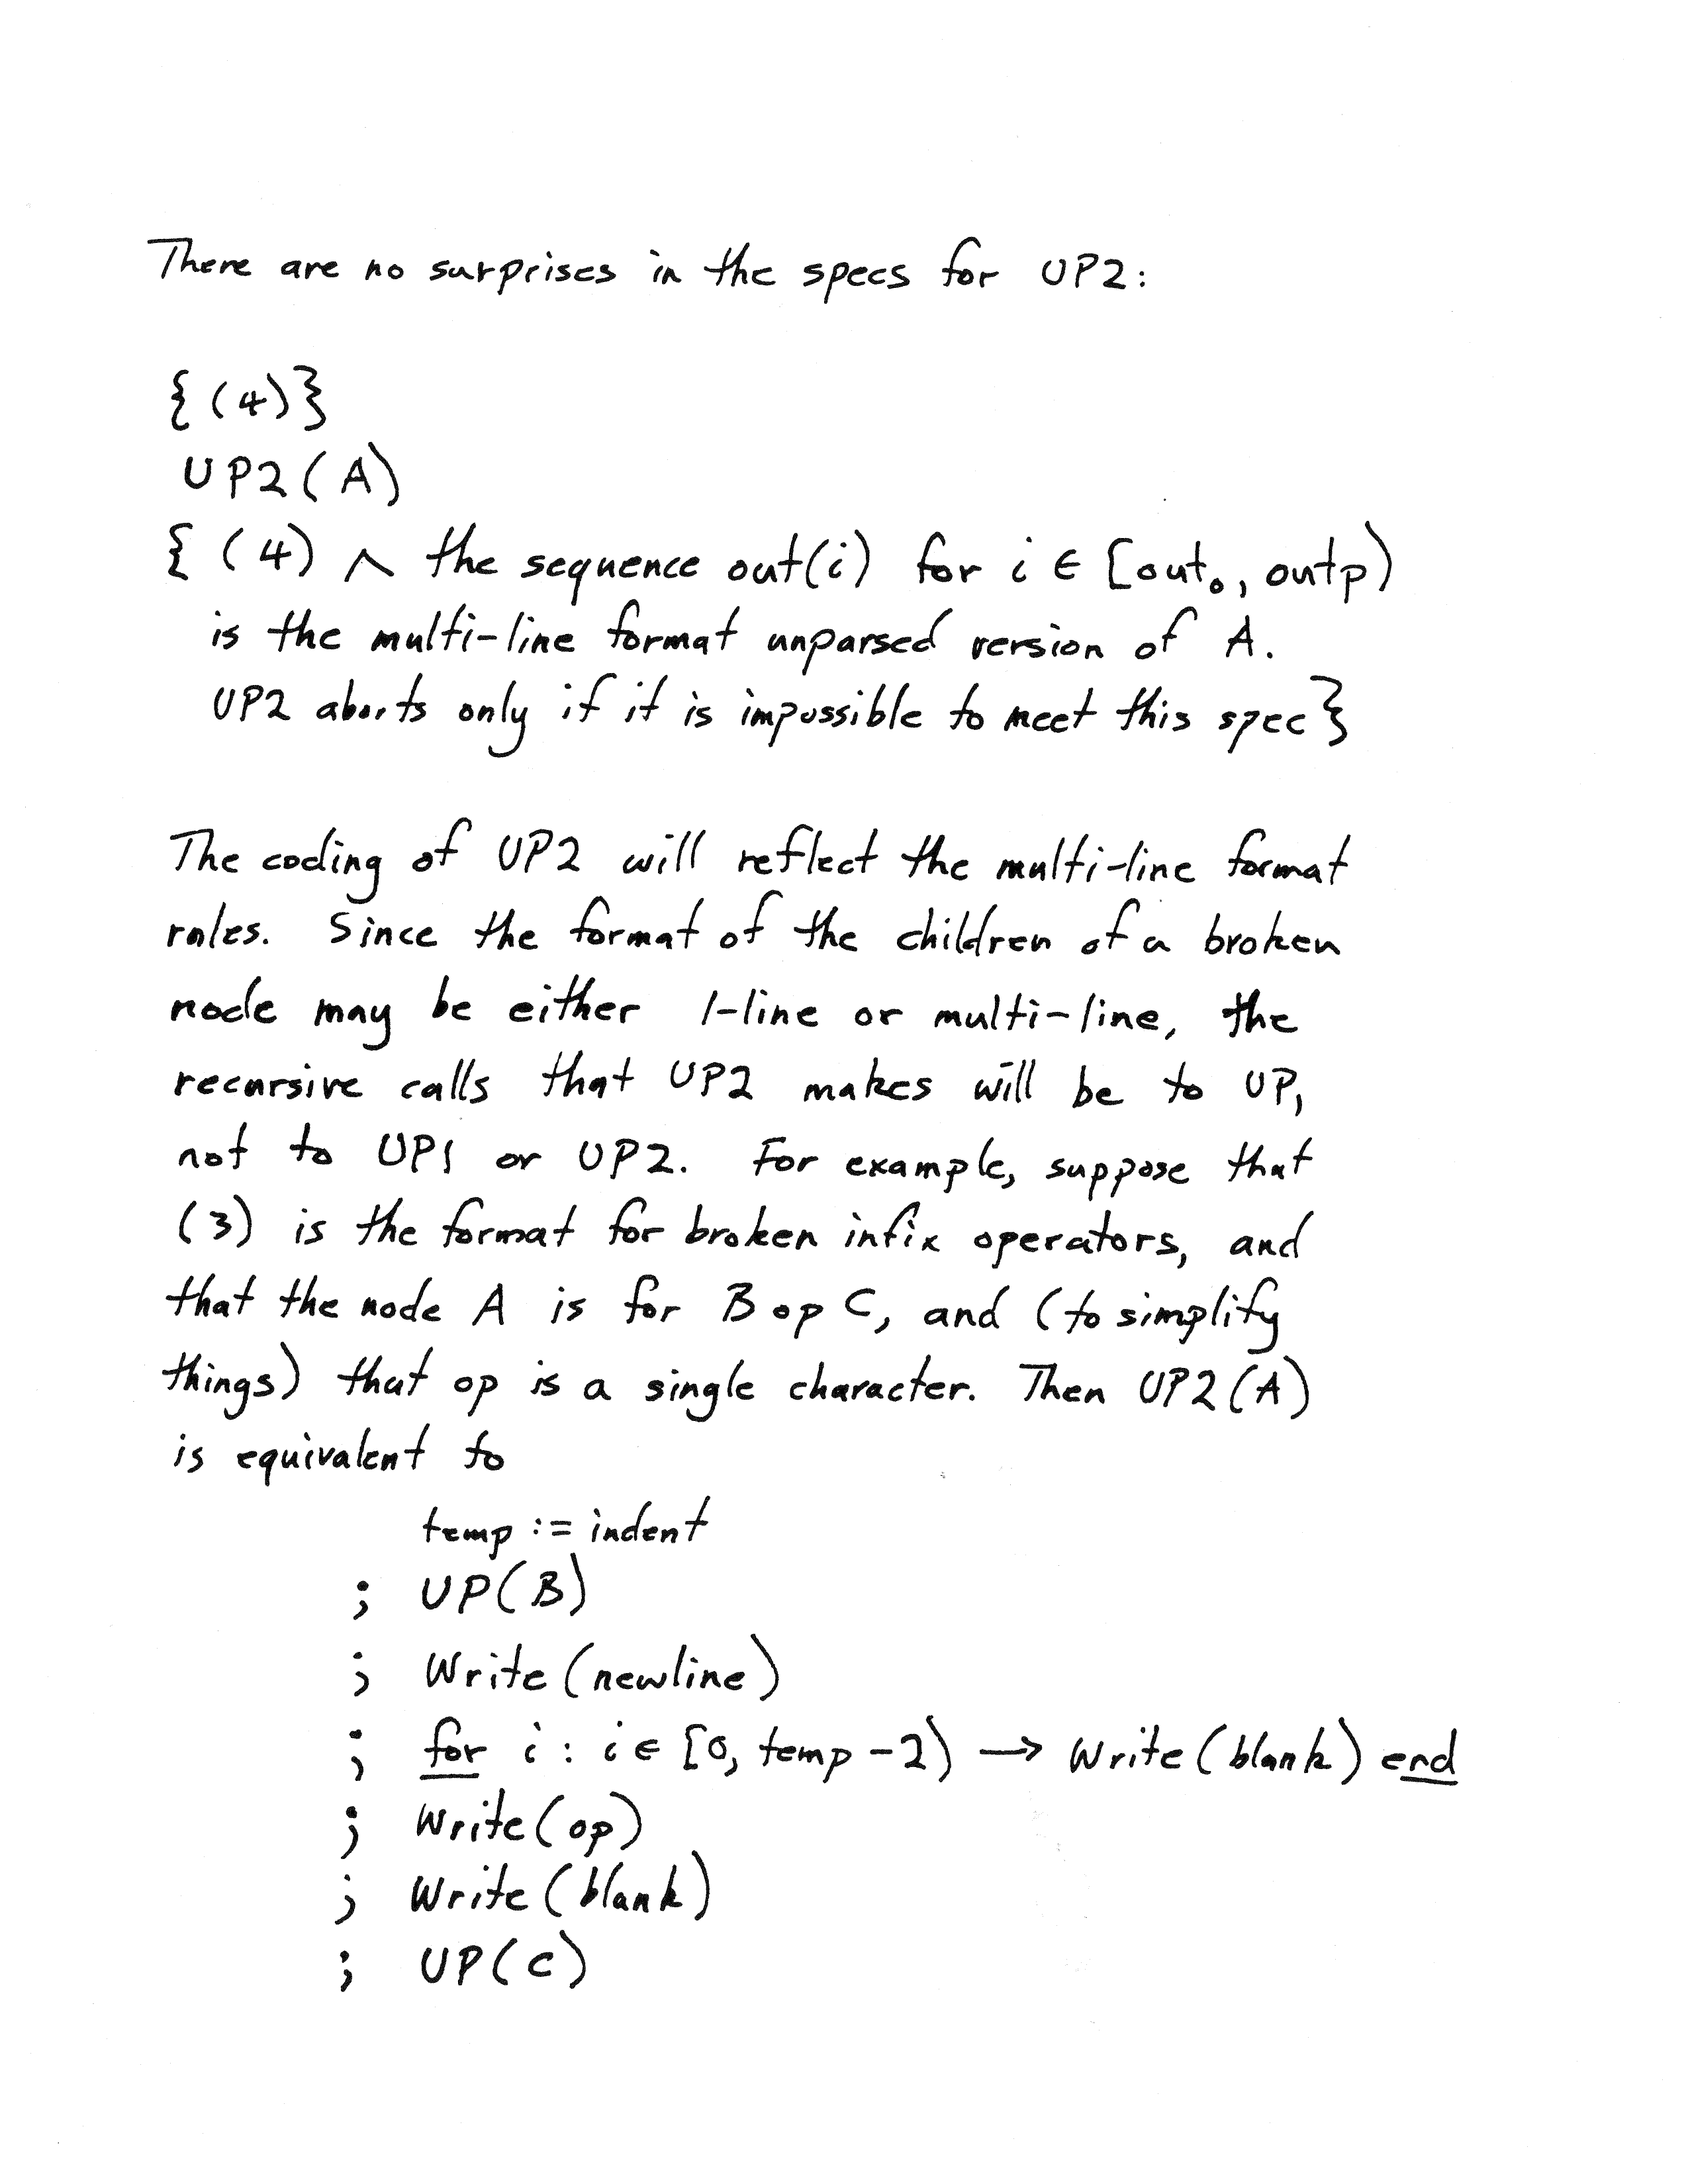 There are no surprises in the specs for UP2:
{(4)}
UP2(A)
{ (4) ∧ the sequence out(i) for i ∈ [out₀, outp)
is the multi-line format unparsed version of A.
UP2 aborts only if it is impossible to meet this spec}
The coding of UP2 will reflect the multi-line format
rules. Since the format of the children of a broken
node may be either 1-line or multi-line, the
recursive calls that UP2 makes will be to UP,
not to UP1 or UP2. For example, suppose that
(3) is the format for broken infix operators, and
that the node A is for B op C, and (to simplify
things) that op is a single character. Then UP2(A)
is equivalent to
temp := indent
; UP(B)
; Write(newline)
; for i : i ∈ [0, temp - 2) → Write(blank) end
; Write(op)
; Write(blank)
; UP(C)